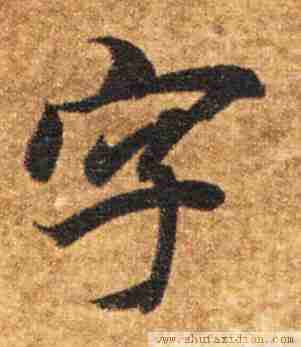 字
www.shufazidian.com